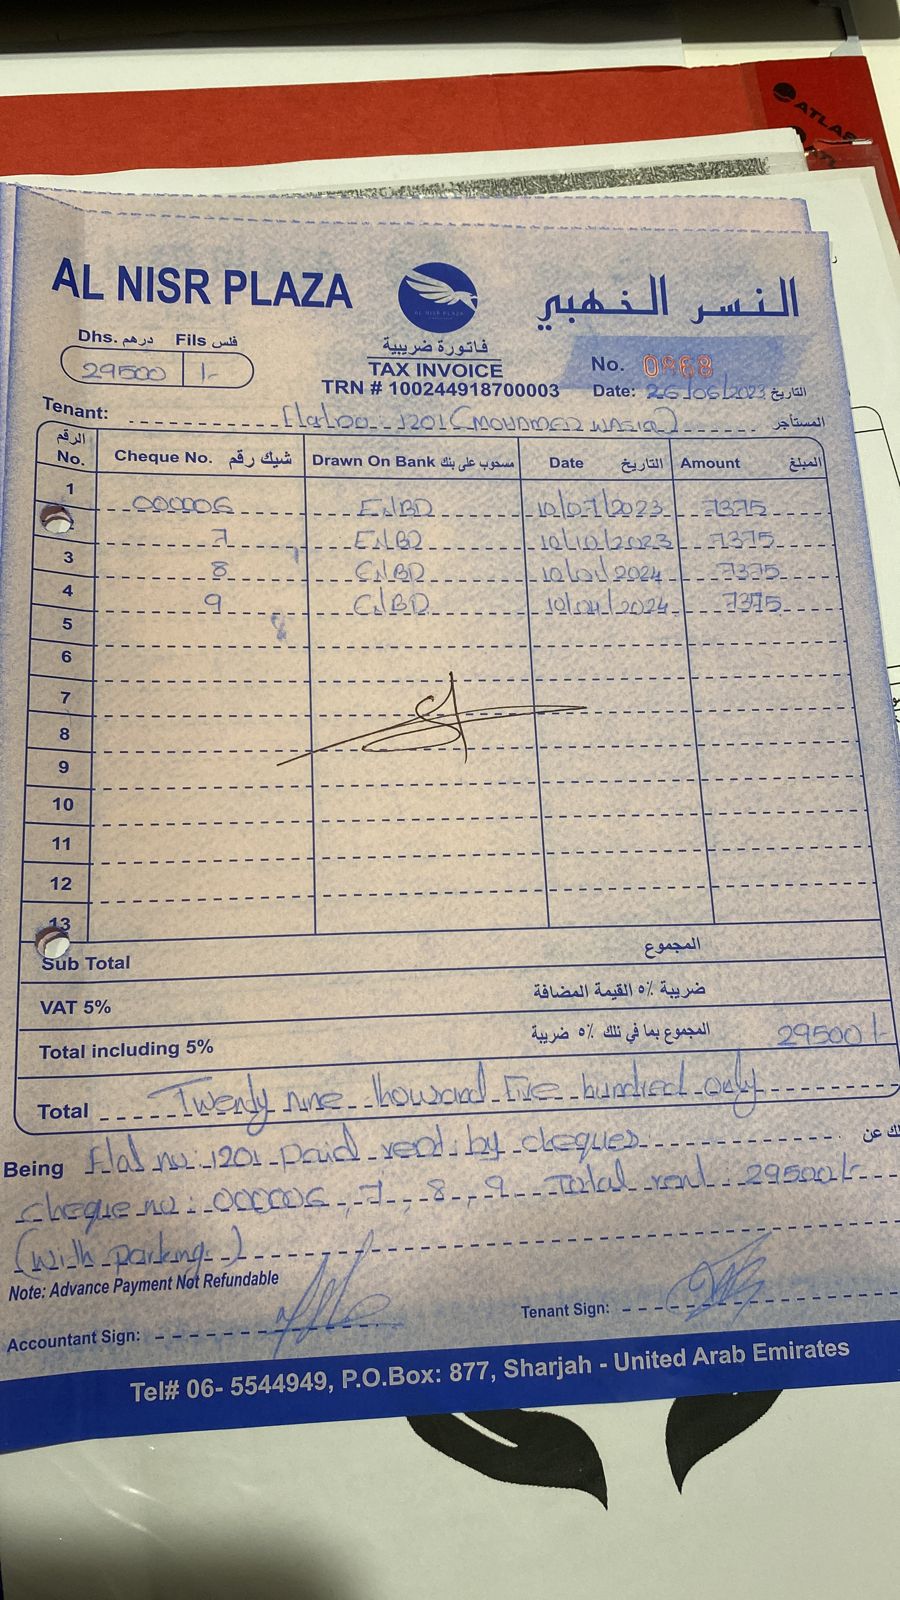 ATLAS
AL NISR PLAZA
النسر الذهبي
AL NISR PLAZA
Dhs. درهم Fils فلس
29500 /-
فاتورة ضريبية
TAX INVOICE
TRN # 100244918700003
No. 0868
Date: 26/06/2023 التاريخ
Tenant: Flat no: 1201 (MOHAMMED WASIQ) المستأجر
الرقم No. Cheque No. شيك رقم Drawn On Bank مسحوب على بنك Date التاريخ Amount المبلغ
1 000006 ENBD 10/07/2023 7375
7 ENBD 10/10/2023 7375
3 8 ENBD 10/01/2024 7375
4 9 ENBD 10/04/2024 7375
5
6
7
8
9
10
11
12
13
Sub Total المجموع
VAT 5% ضريبة ٥% القيمة المضافة
Total including 5% المجموع بما في ذلك ٥% ضريبة 29500 /-
Total Twenty nine thousand Five hundred only
Being Flat no: 1201 paid rent by cheques
cheque no: 000006, 7, 8, 9 Total rent 29500/-
(with parking)
Note: Advance Payment Not Refundable
Accountant Sign: Tenant Sign:
Tel# 06- 5544949, P.O.Box: 877, Sharjah - United Arab Emirates